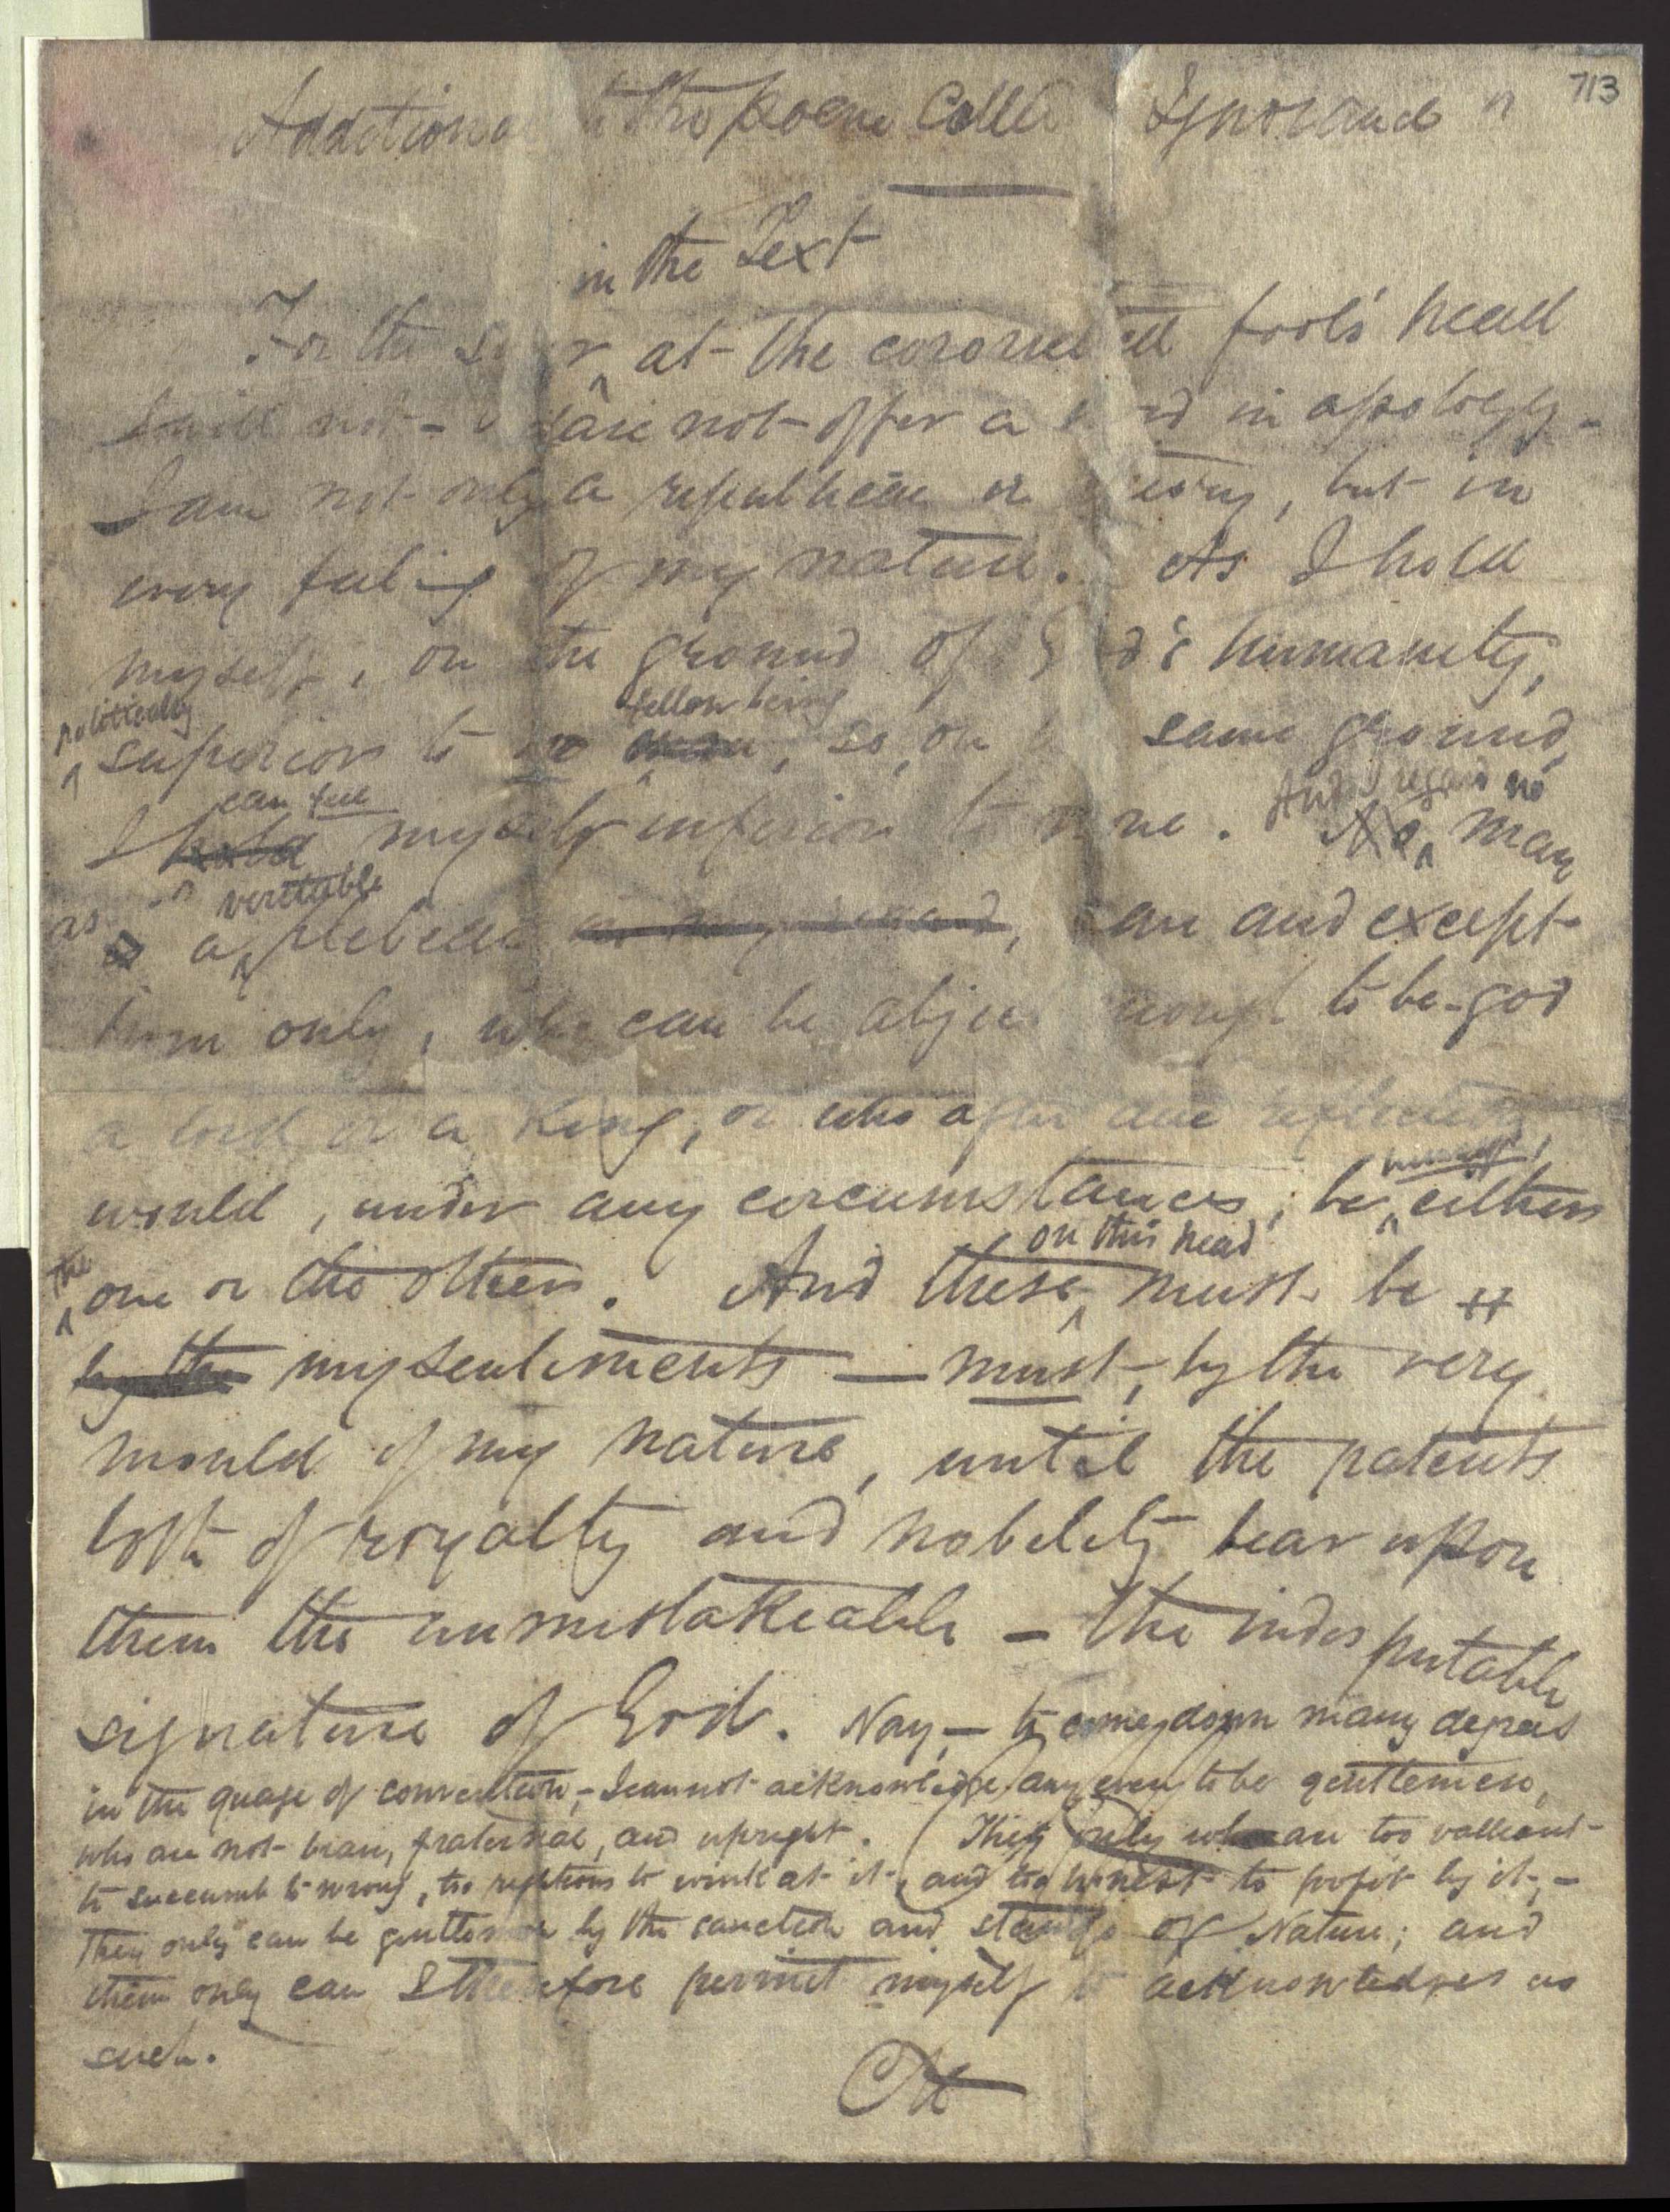 713
Additional to the poem Called Ignorance
in the Text
For the sneer at the coroneted fool's head
I will not – I dare not offer a word in apology –
I am not only a republican in theory, but in
every feeling of my nature. As I hold
myself, on the ground of God's humanity,
politically fellow being
superior to no man, so, on the same ground,
can feel And I regard no
I hold myself inferior to none. No man
as veritable
as a plebeian in my regard, save and except
him only, who can be abject enough to be-god
a lord or a King, or who after due reflection,
himself,
would, under any circumstances, be either
on this head
the one or the other. And these must be
by the my sentiments — must, by the very
mould of my nature, until the patents
both of royalty and nobility bear upon
them the unmistakeable – the indisputable
signature of God. Nay, – to come down many degrees
in the guage of convention, – I cannot acknowledge any even to be gentlemen,
who are not brave, fraternal, and upright. They only who are too valliant
to succumb to wrong, too righteous to wink at it, and too honest to profit by it, –
They only can be gentlemen by the sanction and stamp of Nature; and
them only can I therefore permit myself to acknowledge as
such.
CH